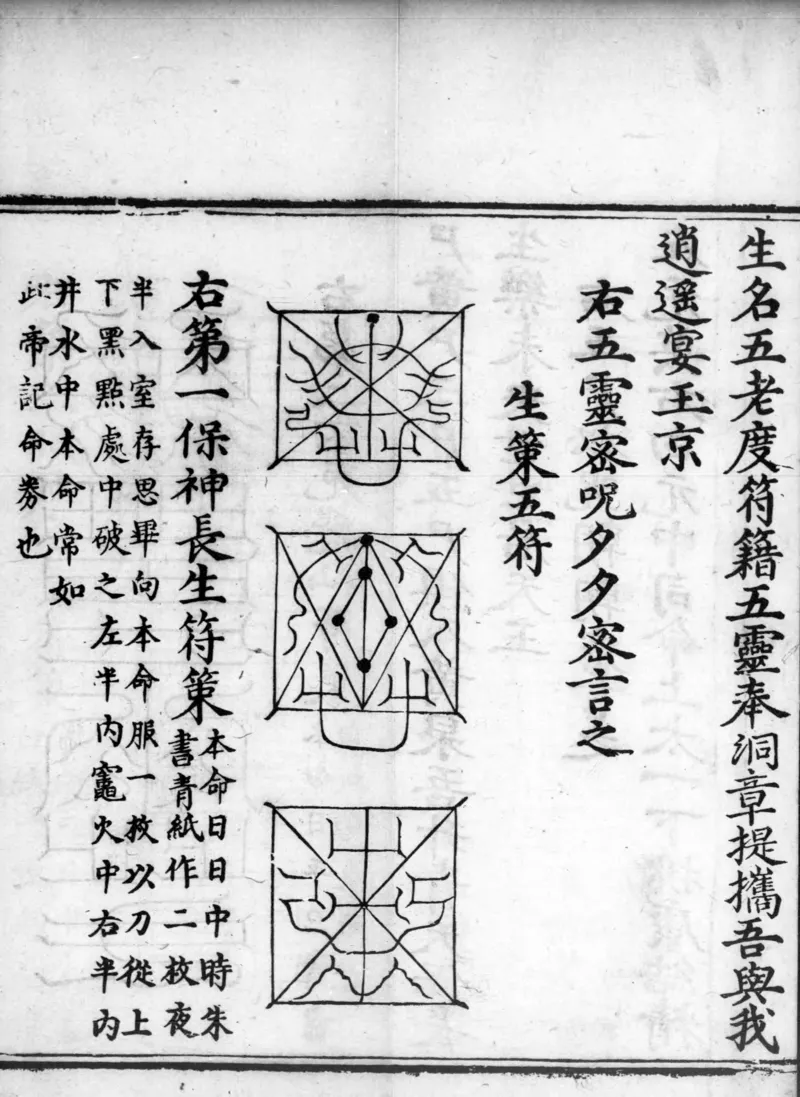 生名五老度符籍五靈奉洞章提攜吾與我
逍遥宴玉京
右五靈密呪夕夕密言之
生策五符
右第一保神長生符策
本命日日中時朱
書青紙作二枚夜
半入室存思畢向本命服一枚以刀從上
下黑點處中破之左半内竈火中右半内
井水中本命常如
此帝記命券也